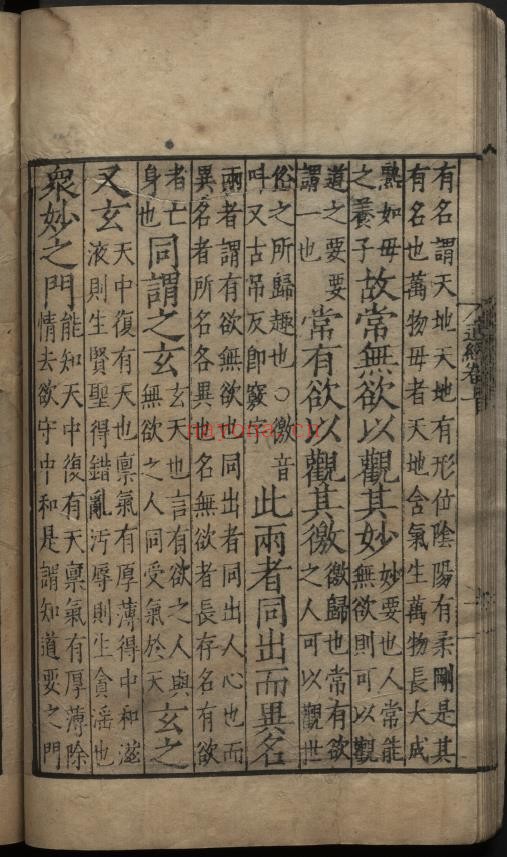 有名謂天地天地有形位陰陽有柔剛是其
有名也萬物母者天地含氣生萬物長大成
熟如母
之養子
故常無欲以觀其妙
妙要也人常能
無欲則可以觀
道之要要
謂一也
常有欲以觀其徼
徼歸也常有欲
之人可以觀世
俗之所歸趣也○徼音
呌又古吊反即竅字
此兩者同出而異名
兩者謂有欲無欲也同出者同出人心也而
異名者所名各異也名無欲者長存名有欲
者亡
身也
同謂之玄
玄天也言有欲之人與
無欲之人同受氣於天
玄之
又玄
天中復有天也稟氣有厚薄得中和滋
液則生賢聖得錯亂汚辱則生貪淫也
衆妙之門
能知天中復有天稟氣有厚薄除
情去欲守中和是謂知道要之門